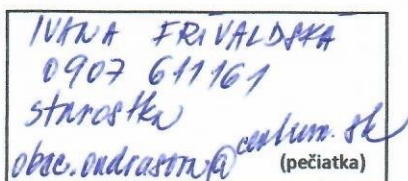 IVANA FRIVALDSKÁ
0907 611161
starostka
obec.ondrasova@centrum.sk
(pečiatka)